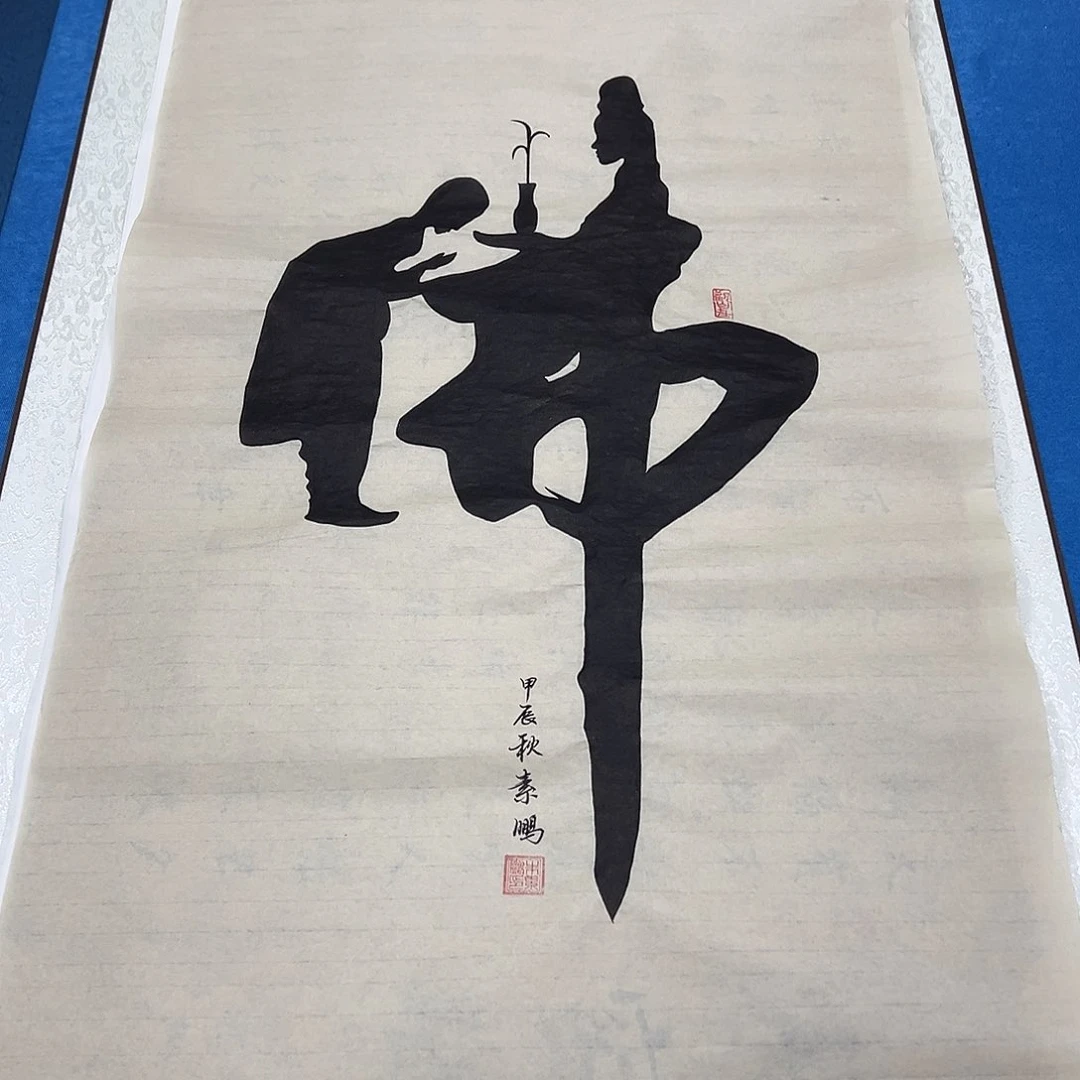 佛
甲辰秋素鹏